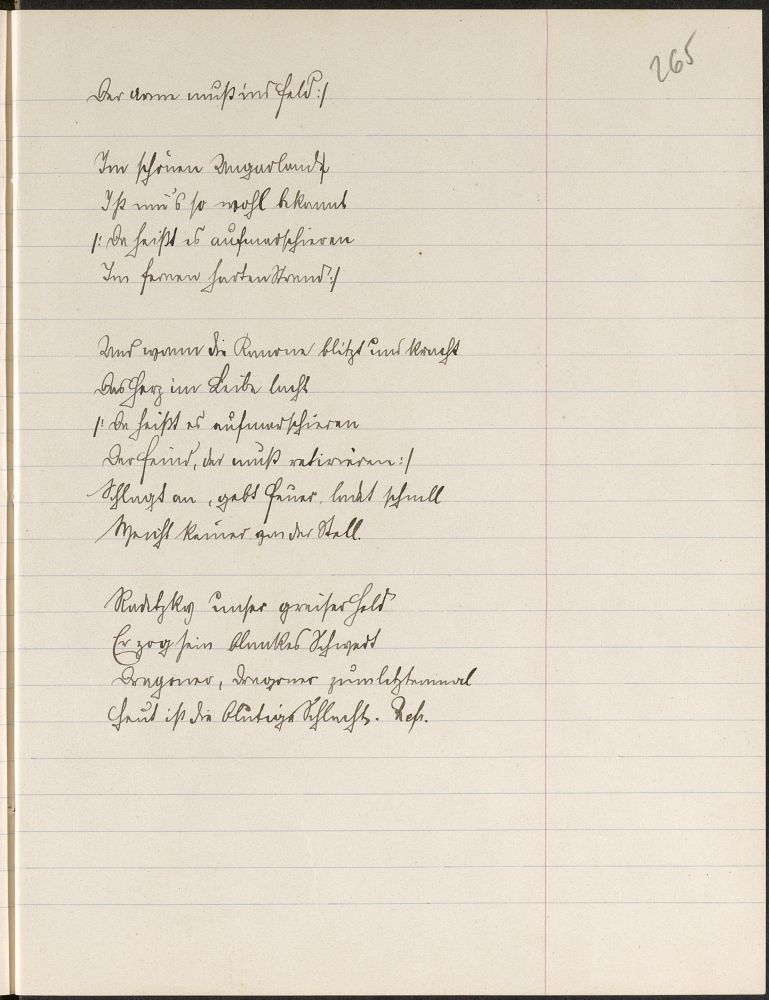 265
Der arme muß ins Feld :/
Im schönen Ungarland
Ist mir's so wohl bekannt
/: Da heißt es aufmarschieren
Im fernen harten Strand :/
Und wann die Kanone blitzt und kracht
Das Herz im Leibe lacht
/: Da heißt es aufmarschieren
Der Feind, der muß retirieren :/
Schlagt an, gebt Feuer, ladet schnell
Weicht keiner von der Stell.
Radetzky unser greiser Held
Er zog sein blankes Schwert
Dragoner, Dragoner zum letztenmal
Heut ist die blutige Schlacht. Rep.